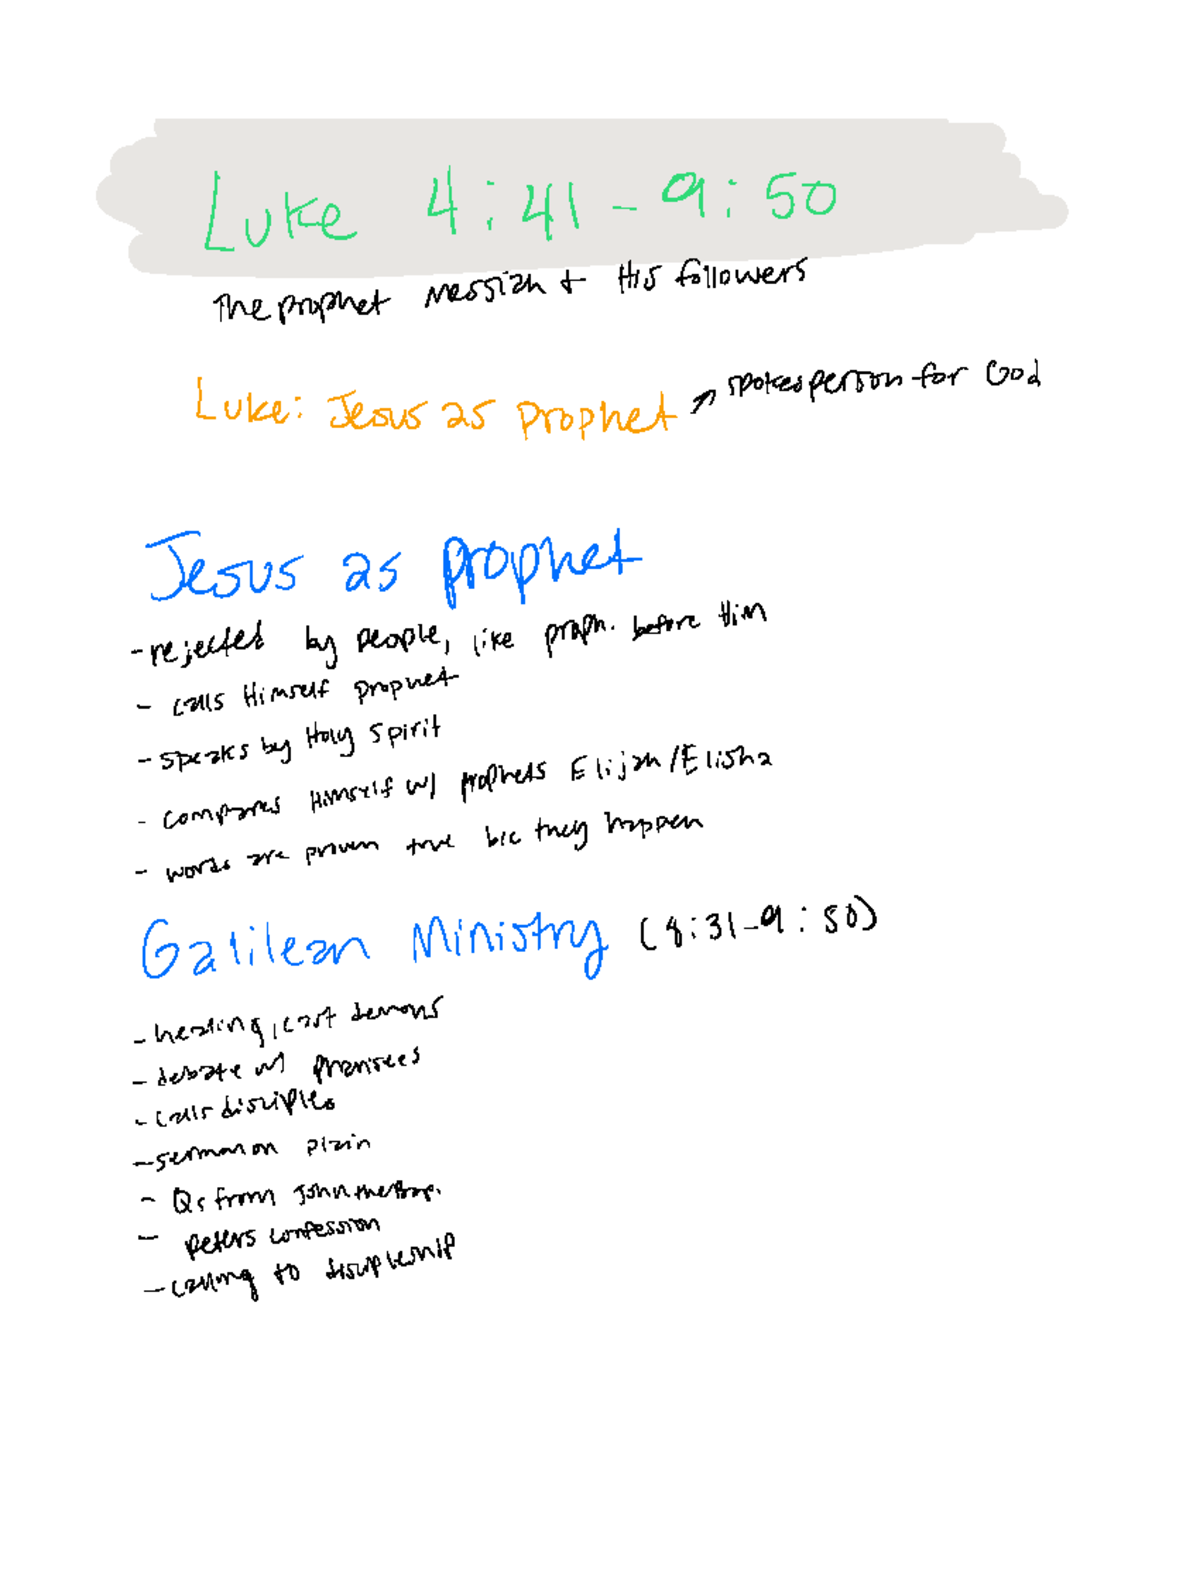 Luke 4:41-9:50
The prophet messiah + His followers
Luke: Jesus as prophet ↗ spokesperson for God
Jesus as prophet
- rejected by people, like proph. before Him
- calls Himself prophet
- speaks by Holy Spirit
- compares Himself w/ prophets Elijah/Elisha
- words are proven true b/c they happen
Galilean Ministry (8:31-9:50)
- healing, cast demons
- debate w/ pharisees
- calls disciples
- sermon on plain
- Qs from John the Bap.
- peters confession
- calling to discipleship